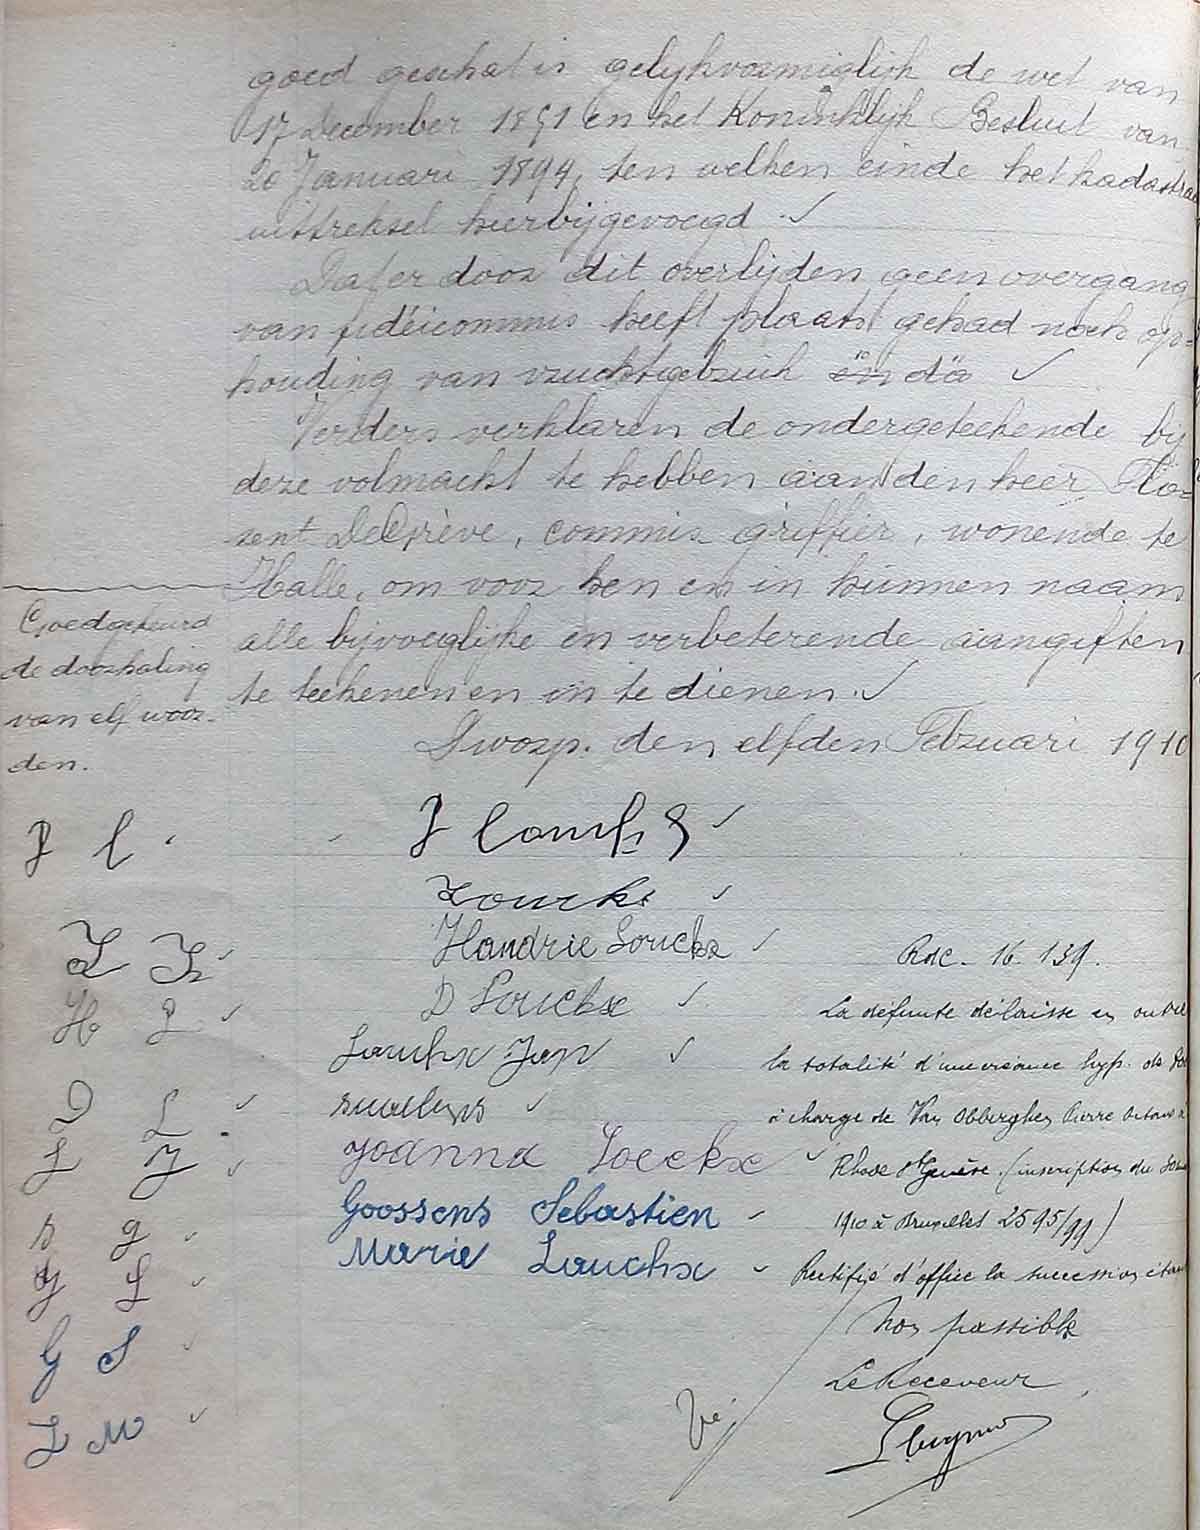 goed geschat is gelijkvormiglijk de wet van
17 December 1851 en het Koninklijk Besluit van
20 Januari 1894, ten welken einde het kadastra
uittreksel hierbijgevoegd.
Dat er door dit overlijden geen overgang
van fideicommis heeft plaats gehad noch op=
houding van vruchtgebruik
Verders verklaren de ondergeteekende bij
deze volmacht te hebben aan den heer Flo=
rent DeGrève, commis griffier, wonende te
Halle, om voor hen en in hunnen naam
alle bijvoeglijke en verbeterende aangiften
te teekenen en in te dienen.
Dworp. den elfden Februari 1910
Goedgekeurd
de doorhaling
van elf woor-
den.
J l
Hendrie Louckx
D Louckx
H L
Jan
D L
L J
Joanna Loeckx
s g
Goossens Sebastien
J L
Marie Louckx
G S
L M
Rdc. 16 139.
La défunte délaisse en outre
la totalité d'une créance hyp. de
à charge de Van Obberghen Pierre
Rhode St Genèse (inscription du
1910 à Bruxelles 2595/99)
Rectifié d'office la succession étan
non passible
Le Receveur